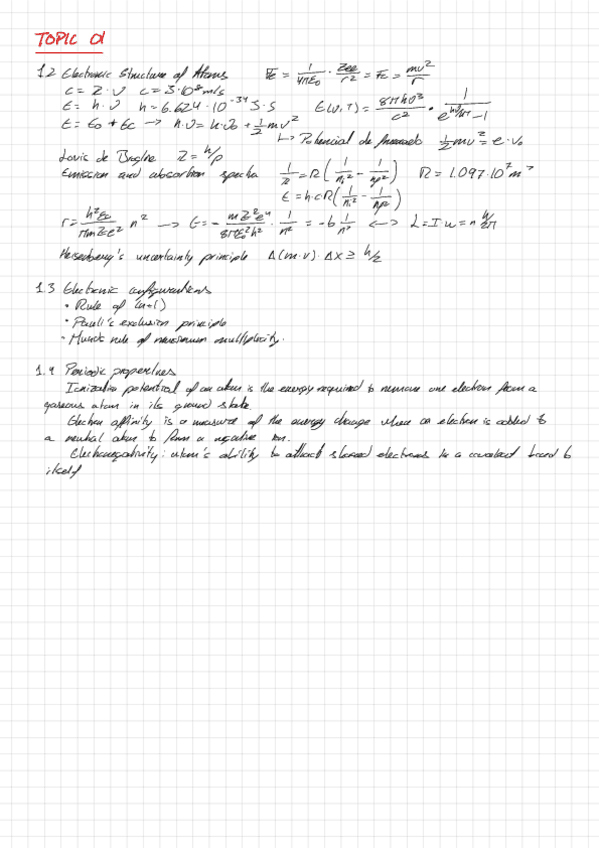 TOPIC 01
1.2 Electronic Structure of Atoms Fe = 1/4πε₀ · Zee/r² = Fc = mv²/r
c = λ · ν c = 3·10⁸ m/s
E = h · ν h = 6.624 · 10⁻³⁴ J·s E(ν,T) = 8πhν³/c² · 1/(e^(hν/kT) − 1)
E = E₀ + Ec → h·ν = h·ν₀ + ½mv² ↳ Potencial de frenado ½mv² = e·v₀
Louis de Broglie λ = h/p
Emission and absorption spectra 1/λ = R(1/n₁² − 1/n₂²) R = 1.097·10⁷ m⁻¹
E = h·c·R(1/n₁² − 1/n₂²)
r = h²ε₀/πmZe² n² → E = − mZ²e⁴/8πε₀²h² · 1/n² = −b 1/n² ↔ L = I w = n h/2π
Heisenberg's uncertainty principle Δ(m·v) · Δx ≥ h/2
1.3 Electronic configurations
• Rule of (n+l)
• Pauli's exclusion principle
• Hund's rule of maximum multiplicity.
1.4 Periodic properties
Ionization potential of an atom is the energy required to remove one electron from a
gaseous atom in its ground state
Electron affinity is a measure of the energy change when an electron is added to
a neutral atom to form a negative ion.
Electronegativity: atom's ability to attract shared electrons in a covalent bond to
itself